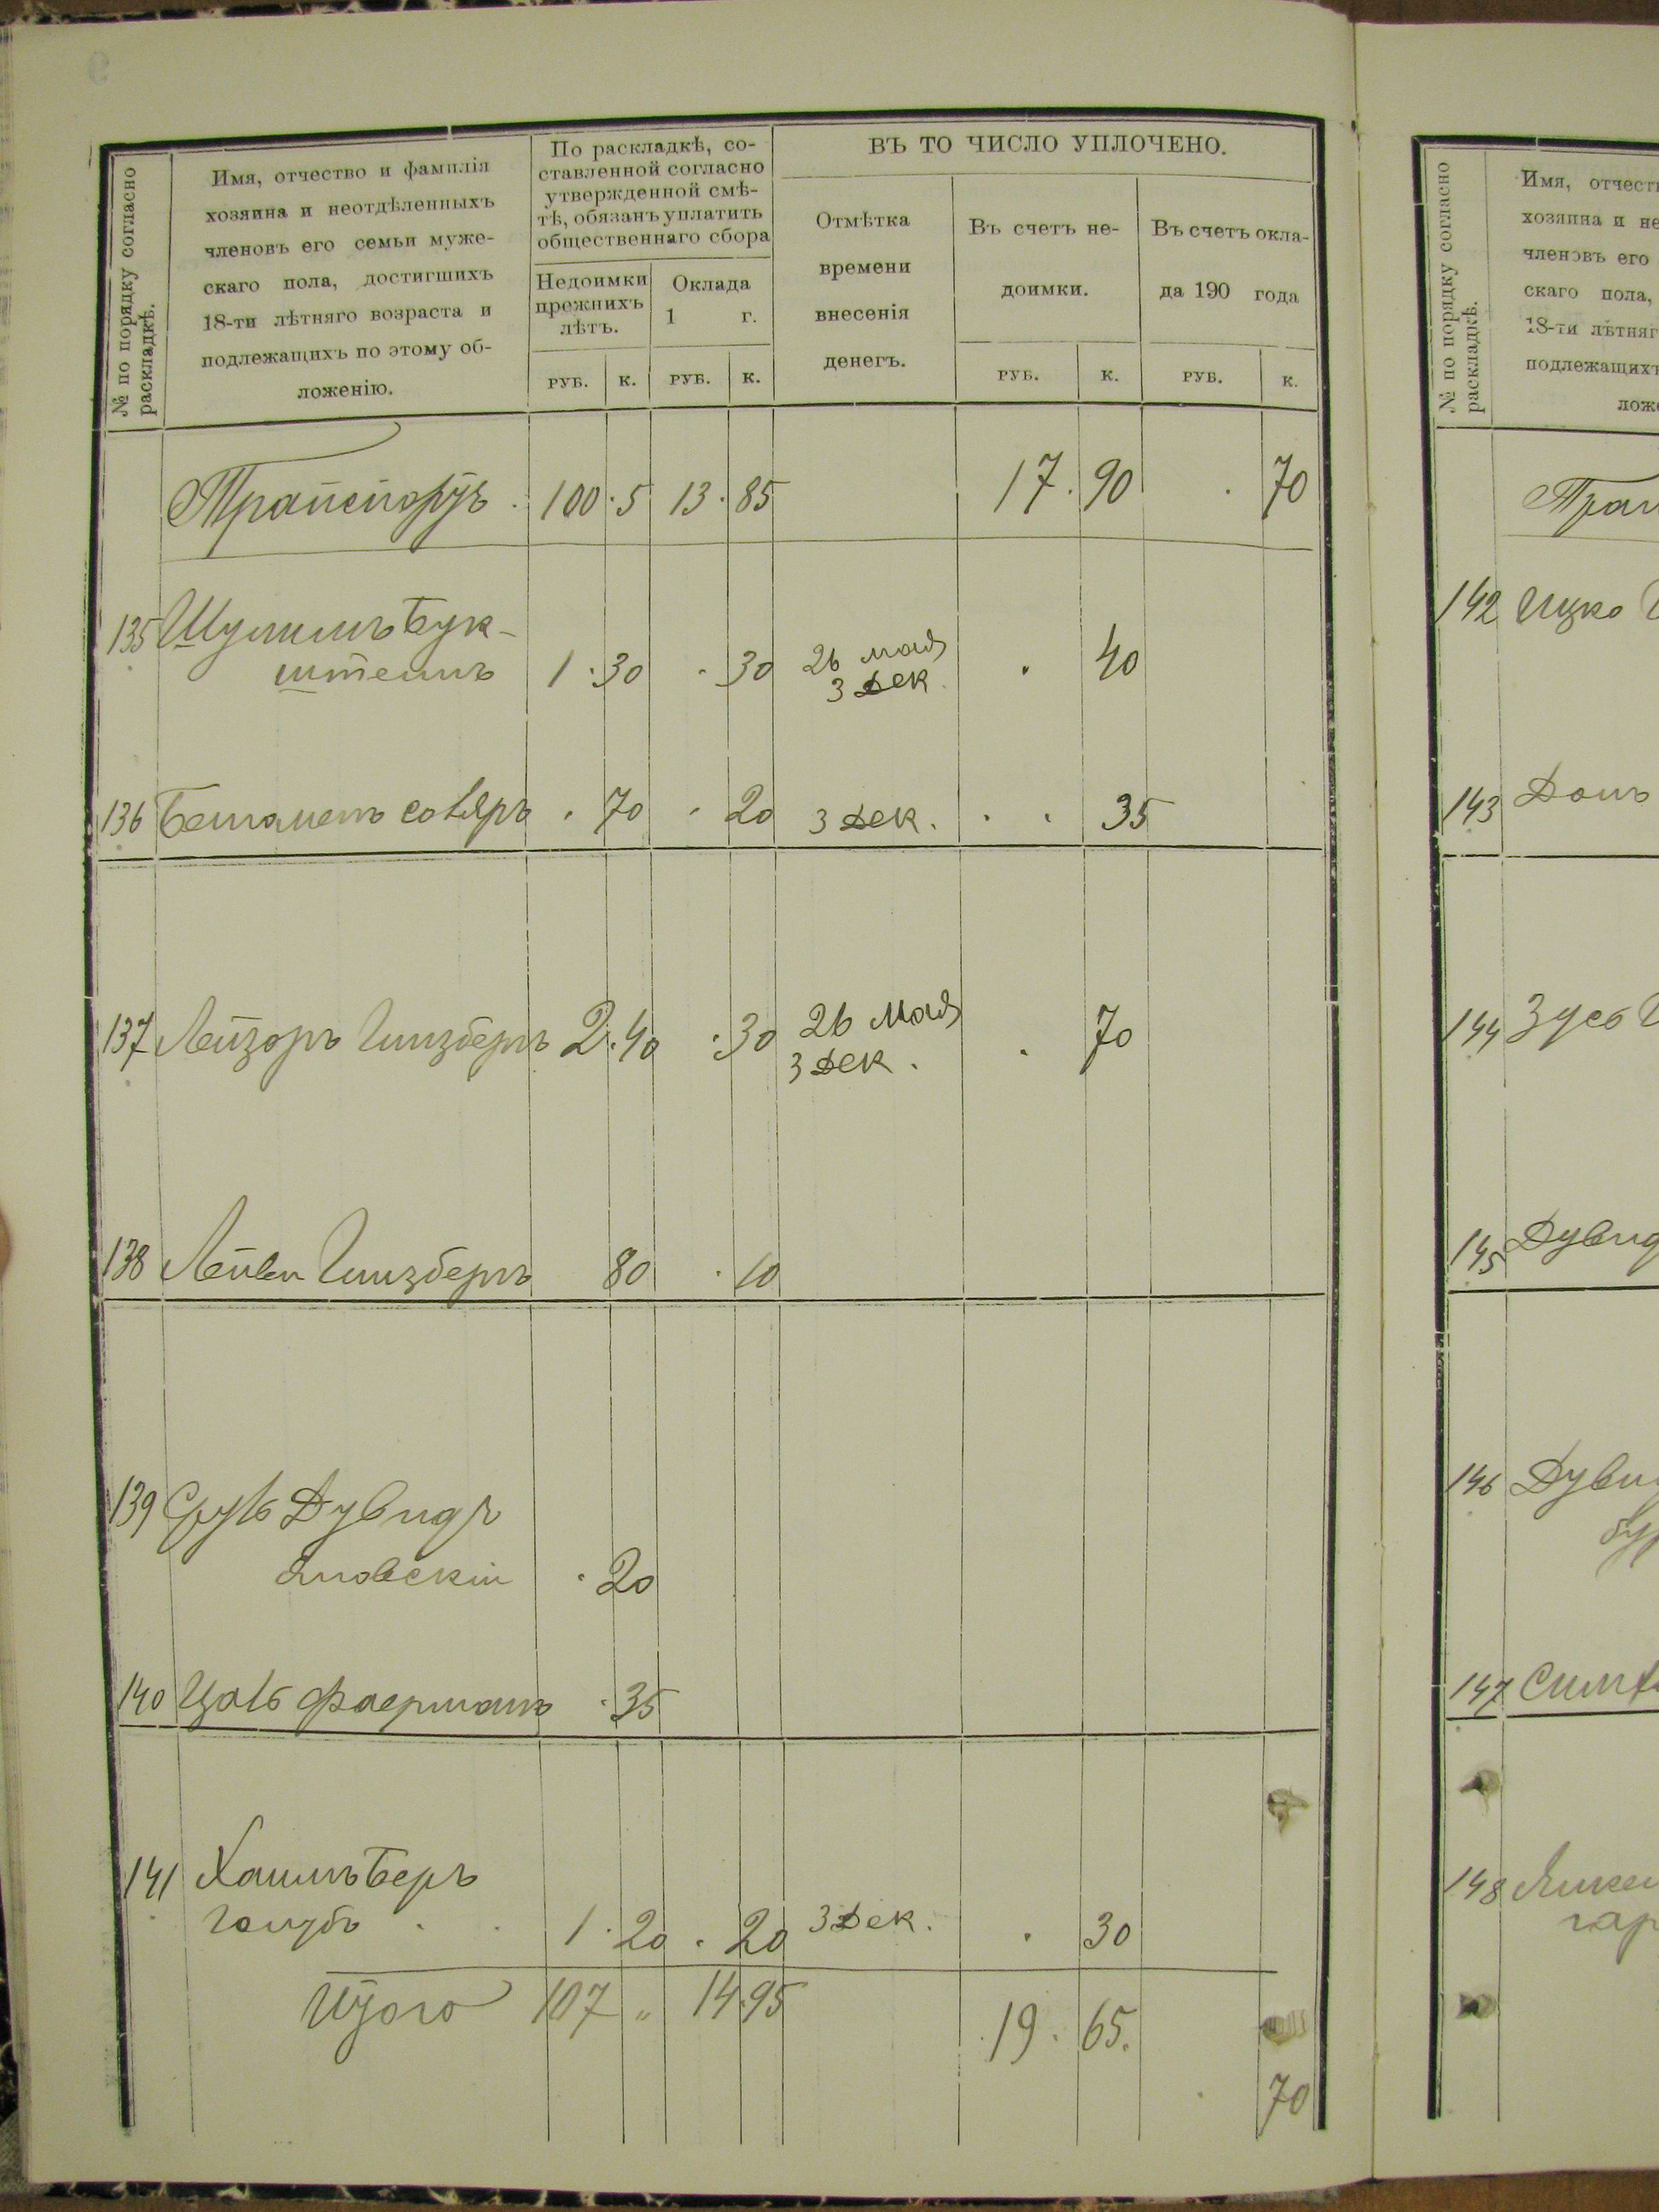 № по порядку согласно
раскладкѣ.
Имя, отчество и фамилія
хозяина и неотдѣленныхъ
членовъ его семьи муже-
скаго пола, достигшихъ
18-ти лѣтняго возраста и
подлежащихъ по этому об-
ложенію.
По раскладкѣ, со-
ставленной согласно
утвержденной смѣ-
тѣ, обязанъ уплатить
общественнаго сбора
Недоимки
прежнихъ
лѣтъ.
Оклада
1 г.
РУБ. К. РУБ. К.
ВЪ ТО ЧИСЛО УПЛОЧЕНО.
Отмѣтка
времени
внесенія
денегъ.
Въ счетъ не-
доимки.
Въ счетъ окла-
да 190 года
РУБ. К. РУБ. К.
Транспортъ . 100 . 5 13 . 85 17 . 90 . 70
135 Шулимъ Бук-
штеинъ 1 . 30 . 30 26 мая . 40
3 Дек.
136 . 70 . 20 3 Дек. . . 35
137 Лейзоръ Гинзбергъ 2 . 40 . 30 26 мая . 70
3 Дек .
138 Лейви Гинзбергъ 80 . 10
139 Сруль Дувидъ
Яновскій . 20
140 Цаль Фаерманъ . 35
141 Хаимъ Беръ
Голубъ . . 1 . 20 . 20 3 Дек. . 30
Итого 107 „ 14 . 95 . 19 . 65.
. 70
№ по порядку согласно
раскладкѣ.
Имя, отчест
хозяина и не
членовъ его
скаго пола,
18-ти лѣтняг
подлежащихъ
лож
Тран
142 Ицко
143
144 Зусь
145 Дувид
146 Дувид
147
148